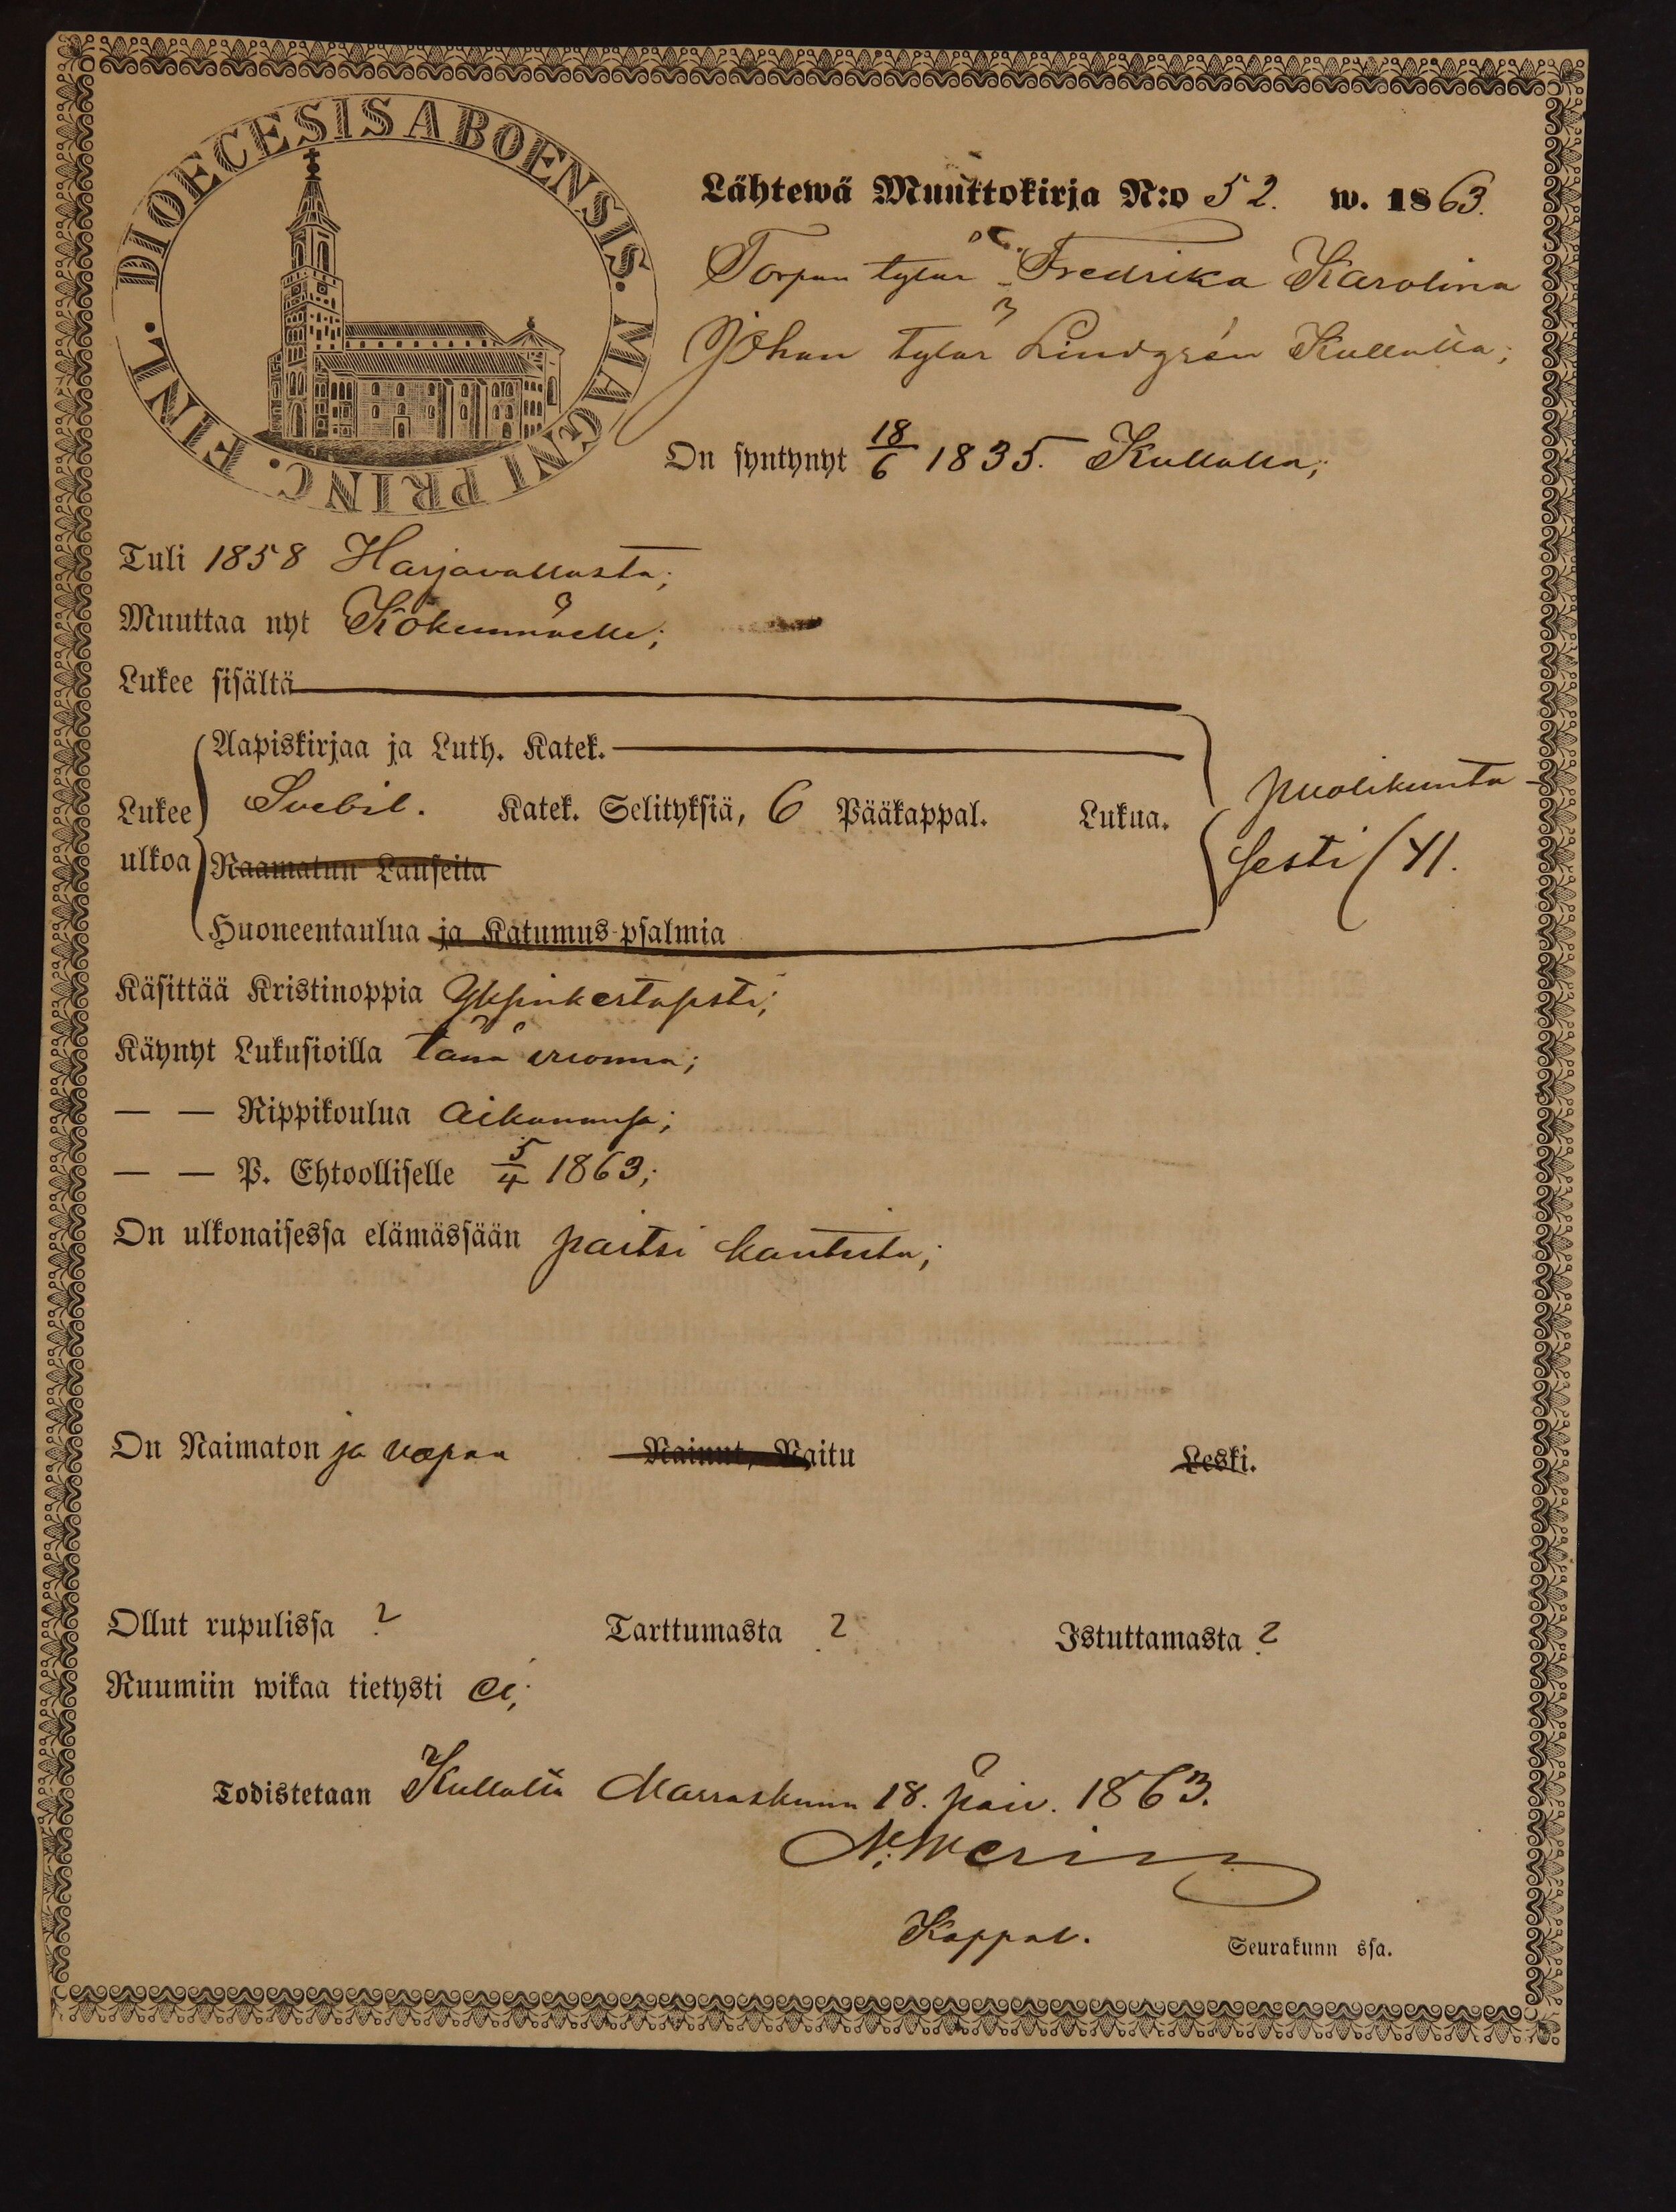 DIOECESIS ABOENSIS. MAGNI PRINC. FINL.
Lähtewä Muuttokirja N:o 52. w. 1863.
Torpan tytär Fredrika Karolina
Johan tytär Lindgrén Kullalla;
On syntynyt 18/6 1835. Kullalla;
Tuli 1858 Harjavallasta;
Muuttaa nyt Kokemäelle;
Lukee sisältä
Aapiskirjaa ja Luth. Katek.
Lukee ulkoa
Svebil. Katek. Selityksiä, 6 Pääkappal. Lukua.
puolikunta
sesti / 41.
Raamatun Lauseita
Huoneentaulua ja Katumus-psalmia
Käsittää Kristinoppia Yksinkertasesti;
Käynyt Lukusioilla tänä vuonna;
— — Rippikoulua aikanansa;
— — P. Ehtoolliselle 5/4 1863;
On ulkonaisessa elämässään paitsi kantesta;
On Naimaton ja vapaa Nainut, Naitu Leski.
Ollut rupulissa ? Tarttumasta ? Istuttamasta ?
Ruumiin wikaa tietysti ei;
Todistetaan Kullalla Marraskuun 18. päiv. 1863.
Kappal. Seurakunn ssa.